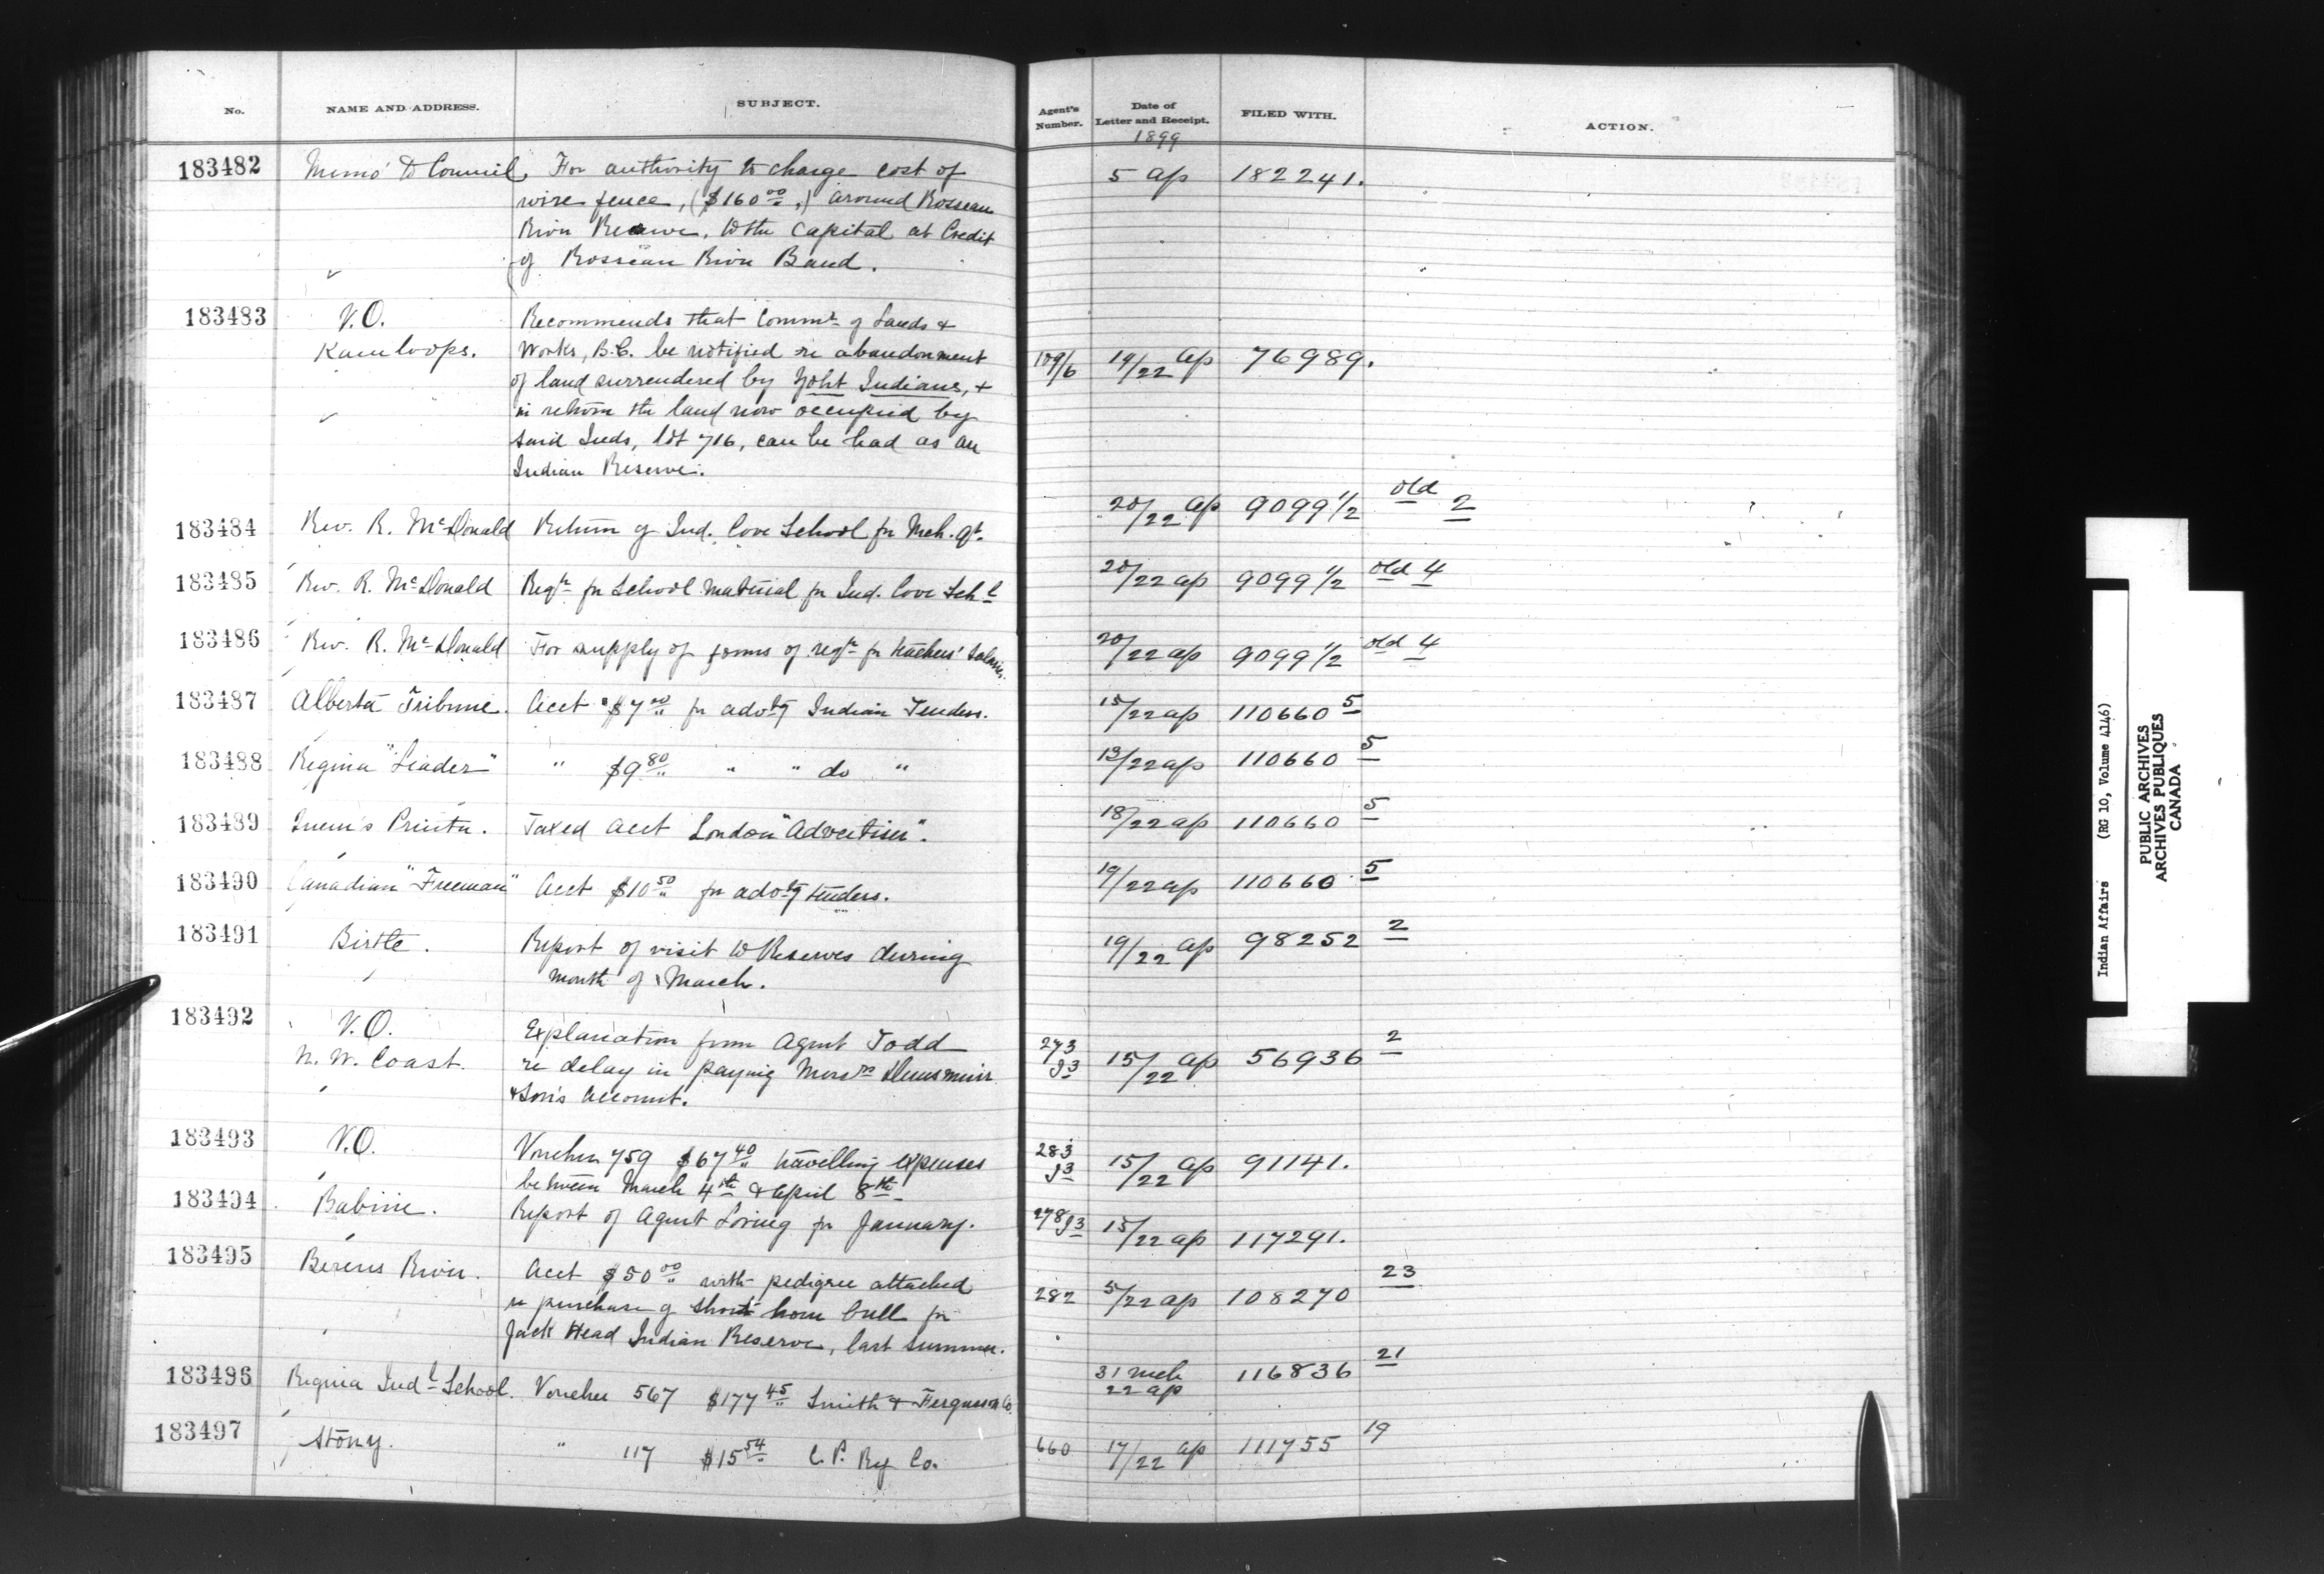 No. NAME AND ADDRESS. SUBJECT. Agent's Number. Date of Letter and Receipt. FILED WITH. ACTION.
1899
183482 Memo to Council, For authority to charge cost of 5 Ap 182241.
wire fence, ($160 00,) around Rosseau
River Reserve, to the Capital at Credit
of Rosseau River Band.
183483 V.O. Recommends that Commr of Lands &
Kamloops. Works, B.C. be notified re abandonment 109/6 19/22 Ap 76989.
of land surrendered by Yoht Indians, &
in return the land now occupied by
said Inds, lot 716, can be had as an
Indian Reserve.
183484 Rev. R. McDonald Return of Ind. Cove School fr Mch. qt. 20/22 Ap 9099 1/2 old 2
183485 Rev. R. McDonald Reqn fr School Material fr Ind. Cove Schl 20/22 Ap 9099 1/2 old 4
183486 Rev. R. McDonald For supply of forms of reqn fr teachers' Salaries. 20/22 Ap 9099 1/2 old 4
183487 Alberta Tribune. Acct $7 00 fr advtg Indian Tenders. 15/22 Ap 110660 5
183488 Regina "Leader" " $9 80 " " do " 13/22 Ap 110660 5
183489 Queen's Printer. Taxed Acct London "Advertiser". 18/22 Ap 110660 5
183490 Canadian "Freeman" Acct $10 50 fr advtg tenders. 19/22 Ap 110660 5
183491 Birtle. Report of visit to Reserves during 19/22 Ap 98252 2
month of March.
183492 V.O. Explanation from Agent Todd
N. W. Coast. re delay in paying Messrs Dunsmuir 273 93 15/22 Ap 56936 2
& Son's account.
183493 V.O. Voucher 759 $67 40 travelling expenses 283 93 15/22 Ap 91141.
between March 4th & April 8th
183494 Babine. Report of Agent Loring fr January. 278 93 15/22 Ap 117291.
183495 Berens River. Acct $50 00 with pedigree attached
re purchase of short horn bull fr 282 5/22 Ap 108270 23
Jack Head Indian Reserve, last summer.
183496 Regina Indl School. Voucher 567 $177 45 Smith & Ferguson Co. 31 Mch 22 Ap 116836 21
183497 Stony. " 117 $15 54 C. P. Ry Co. 660 17/22 Ap 111755 19
Indian Affairs (RG 10, Volume 4146)
PUBLIC ARCHIVES
ARCHIVES PUBLIQUES
CANADA